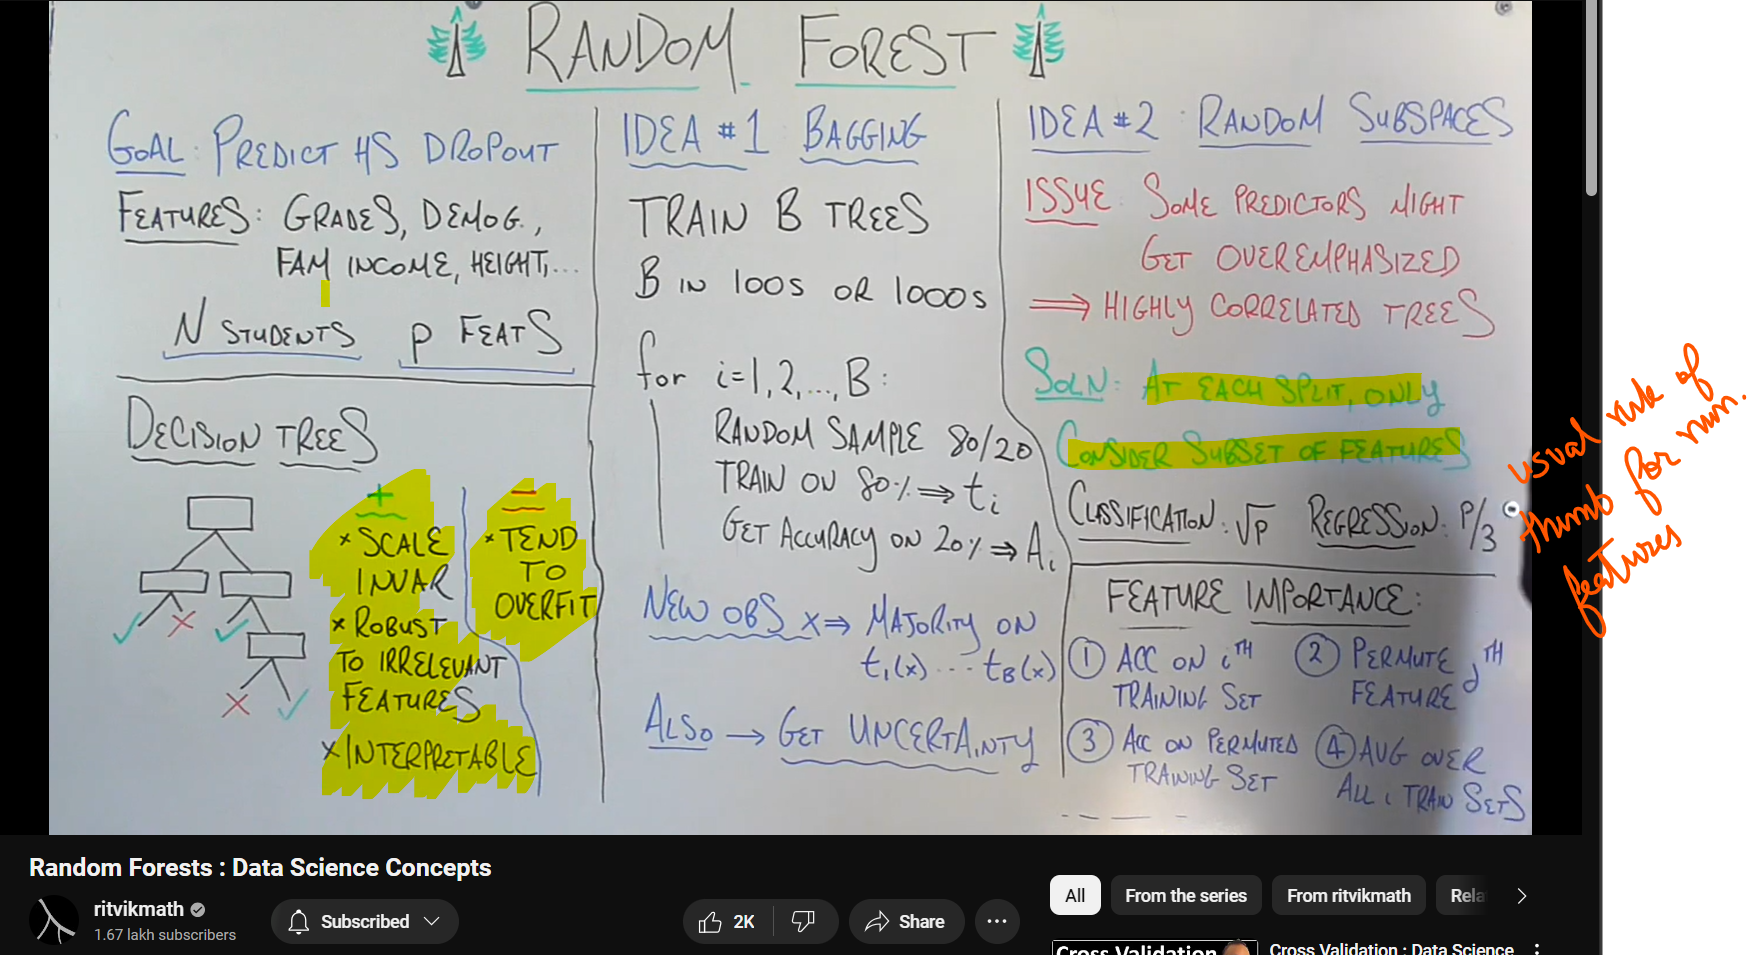 RANDOM FOREST
GOAL: PREDICT HS DROPOUT
FEATURES: GRADES, DEMOG.,
FAM INCOME, HEIGHT,...
N STUDENTS p FEATS
DECISION TREES
+
× SCALE
INVAR
× ROBUST
TO IRRELEVANT
FEATURES
× INTERPRETABLE
−
× TEND
TO
OVERFIT
IDEA #1: BAGGING
TRAIN B TREES
B IN 100S OR 1000S
for i=1,2,...,B:
RANDOM SAMPLE 80/20
TRAIN ON 80% ⇒ ti
GET ACCURACY ON 20% ⇒ Ai
NEW OBS x ⇒ MAJORITY ON
t1(x) ... tB(x)
ALSO → GET UNCERTAINTY
IDEA #2: RANDOM SUBSPACES
ISSUE: SOME PREDICTORS MIGHT
GET OVEREMPHASIZED
⇒ HIGHLY CORRELATED TREES
SOLN: AT EACH SPLIT, ONLY
CONSIDER SUBSET OF FEATURES
CLASSIFICATION: √p REGRESSION: P/3
usual rule of
thumb for num.
features
FEATURE IMPORTANCE:
① ACC ON iTH
TRAINING SET
② PERMUTE jTH
FEATURE
③ ACC ON PERMUTED
TRAINING SET
④ AVG OVER
ALL i TRAIN SETS
Random Forests : Data Science Concepts
ritvikmath
1.67 lakh subscribers
Subscribed
2K
Share
All
From the series
From ritvikmath
Rela
Cross Validation
Cross Validation : Data Science